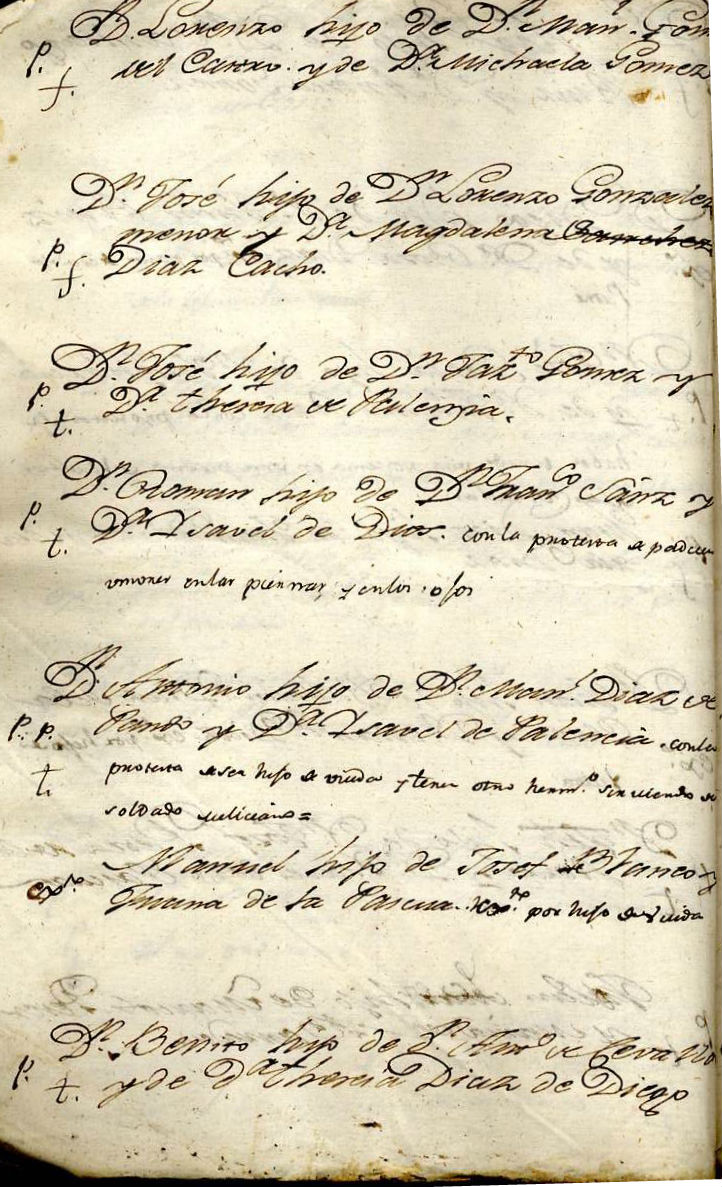 Dn. Lorenzo hijo de Dn. Man. Gom
P. del Carro. y de Da. Michaela Gomez
f.
Dn. José hijo de Dn. Lorenzo Gonzalez
menor y Da. Magdalena
P. f. Diaz Cacho.
Dn. José hijo de Dn. Gomez y
P. t. Da. theresa de Palenzia.
Dn. Roman hijo de Dn. Franco. Sanz y
P. t. Da. Ysavel de Dios. con la protesta de padecer
umores en las piernas, y en los ojos
Dn. Antonio hijo de Dn. Manl. Diaz de
P. P. Pando y Da. Ysavel de Palencia. con la
t. protesta de ser hijo de viuda y tener otro hermo. sirviendo de
soldado miliciano=
Manuel hijo de Josef Blanco y
expto. de la Pascua. por hijo de viuda
Dn. Benito hijo de Dn. Anto. de Cevallo
P. t. y de Da. theresa Diaz de Diego